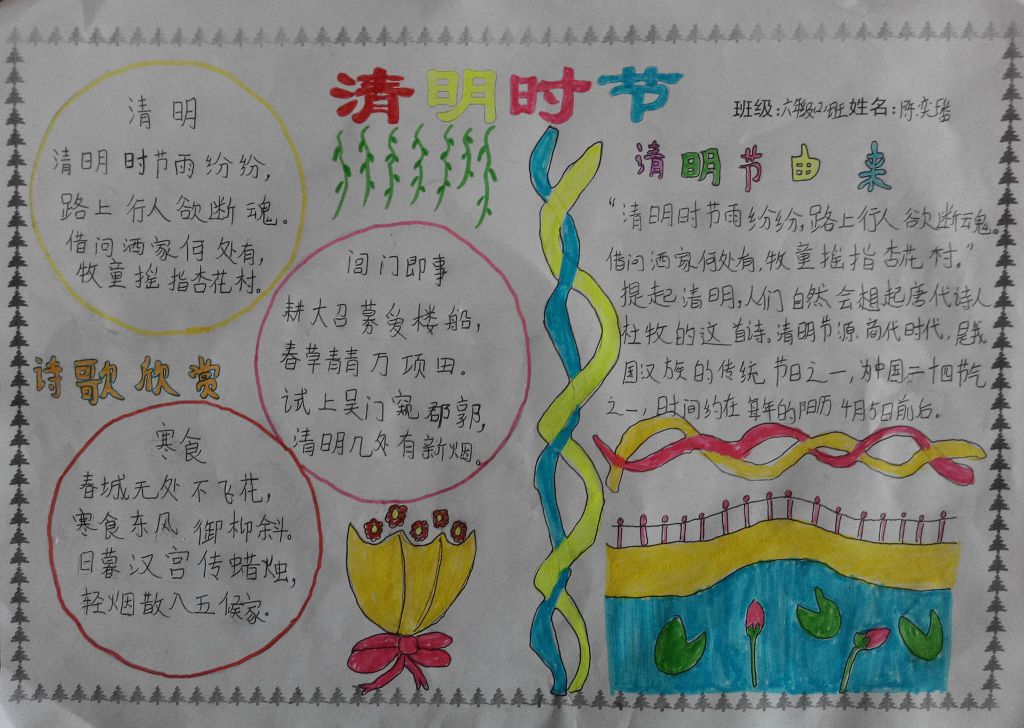 清明时节
班级:六年级(2)班姓名:陈奕
清明
清明时节雨纷纷,
路上行人欲断魂。
借问酒家何处有,
牧童摇指杏花村。
诗歌欣赏
闾门即事
耕大召募爱楼船,
春草青青万项田。
试上吴门窥郡郭,
清明几处有新烟。
寒食
春城无处不飞花,
寒食东风御柳斜。
日暮汉宫传蜡烛,
轻烟散入五候家。
清明节由来
“清明时节雨纷纷,路上行人欲断魂。
借问酒家何处有,牧童摇指杏花村。”
提起清明,人们自然会想起唐代诗人
杜牧的这首诗。清明节源商代时代,是我
国汉族的传统节日之一,为中国二十四节气
之一,时间约在每年的阳历4月5日前后。